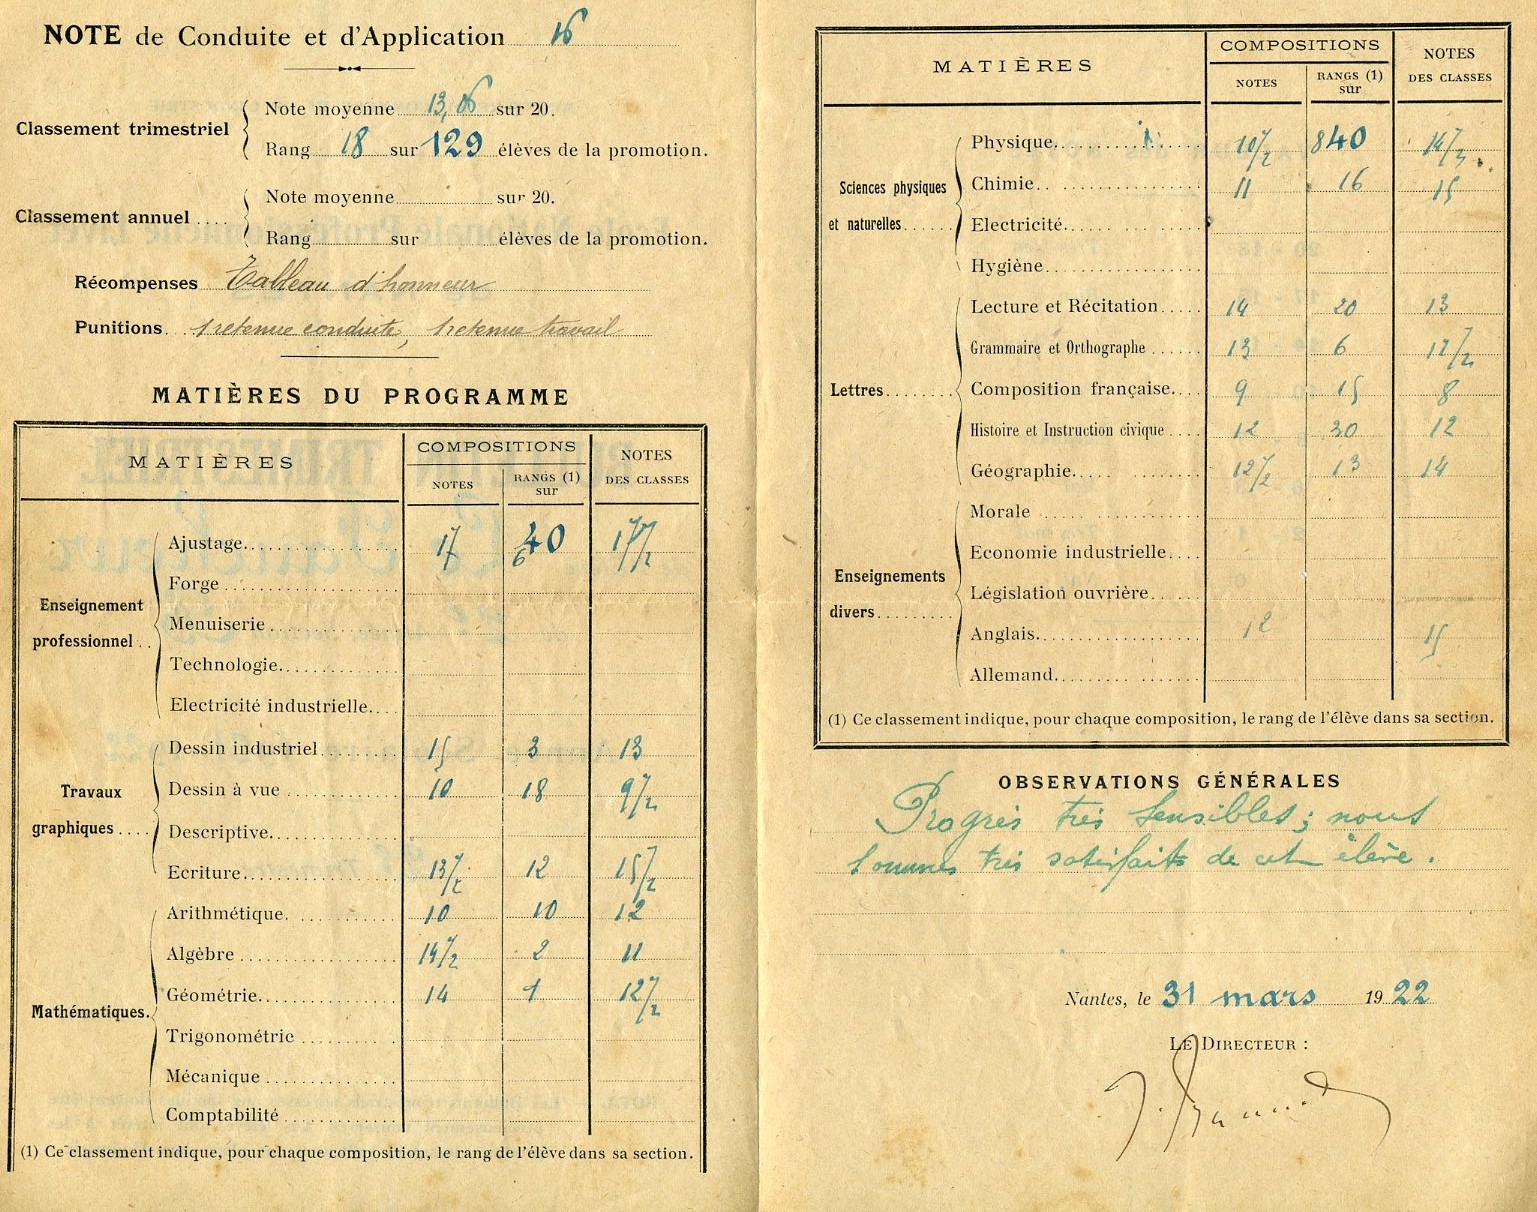 NOTE de Conduite et d'Application 16
Classement trimestriel
Note moyenne 13,06 sur 20.
Rang 18 sur 129 élèves de la promotion.
Classement annuel ....
Note moyenne sur 20.
Rang sur élèves de la promotion.
Récompenses Tableau d'honneur
Punitions 1 retenue conduite, 1 retenue travail
MATIÈRES DU PROGRAMME
MATIÈRES COMPOSITIONS NOTES DES CLASSES
NOTES RANGS (1) sur
Enseignement professionnel
Ajustage 17 6 40 17 1/2
Forge
Menuiserie
Technologie
Electricité industrielle
Travaux graphiques
Dessin industriel 15 3 13
Dessin à vue 10 18 9 1/2
Descriptive
Ecriture 13 1/2 12 15 1/2
Mathématiques
Arithmétique 10 10 12
Algèbre 14 1/2 2 11
Géométrie 14 1 12 1/2
Trigonométrie
Mécanique
Comptabilité
(1) Ce classement indique, pour chaque composition, le rang de l'élève dans sa section.
MATIÈRES COMPOSITIONS NOTES DES CLASSES
NOTES RANGS (1) sur
Sciences physiques et naturelles
Physique 10 1/2 8 40 14 1/2
Chimie 11 16 15
Electricité
Hygiène
Lettres
Lecture et Récitation 14 20 13
Grammaire et Orthographe 13 6 12 1/2
Composition française 9 15 8
Histoire et Instruction civique 12 30 12
Géographie 12 1/2 13 14
Enseignements divers
Morale
Economie industrielle
Législation ouvrière
Anglais 12 15
Allemand
(1) Ce classement indique, pour chaque composition, le rang de l'élève dans sa section.
OBSERVATIONS GÉNÉRALES
Progrès très sensibles ; nous
sommes très satisfaits de cet élève.
Nantes, le 31 mars 1922
LE DIRECTEUR :